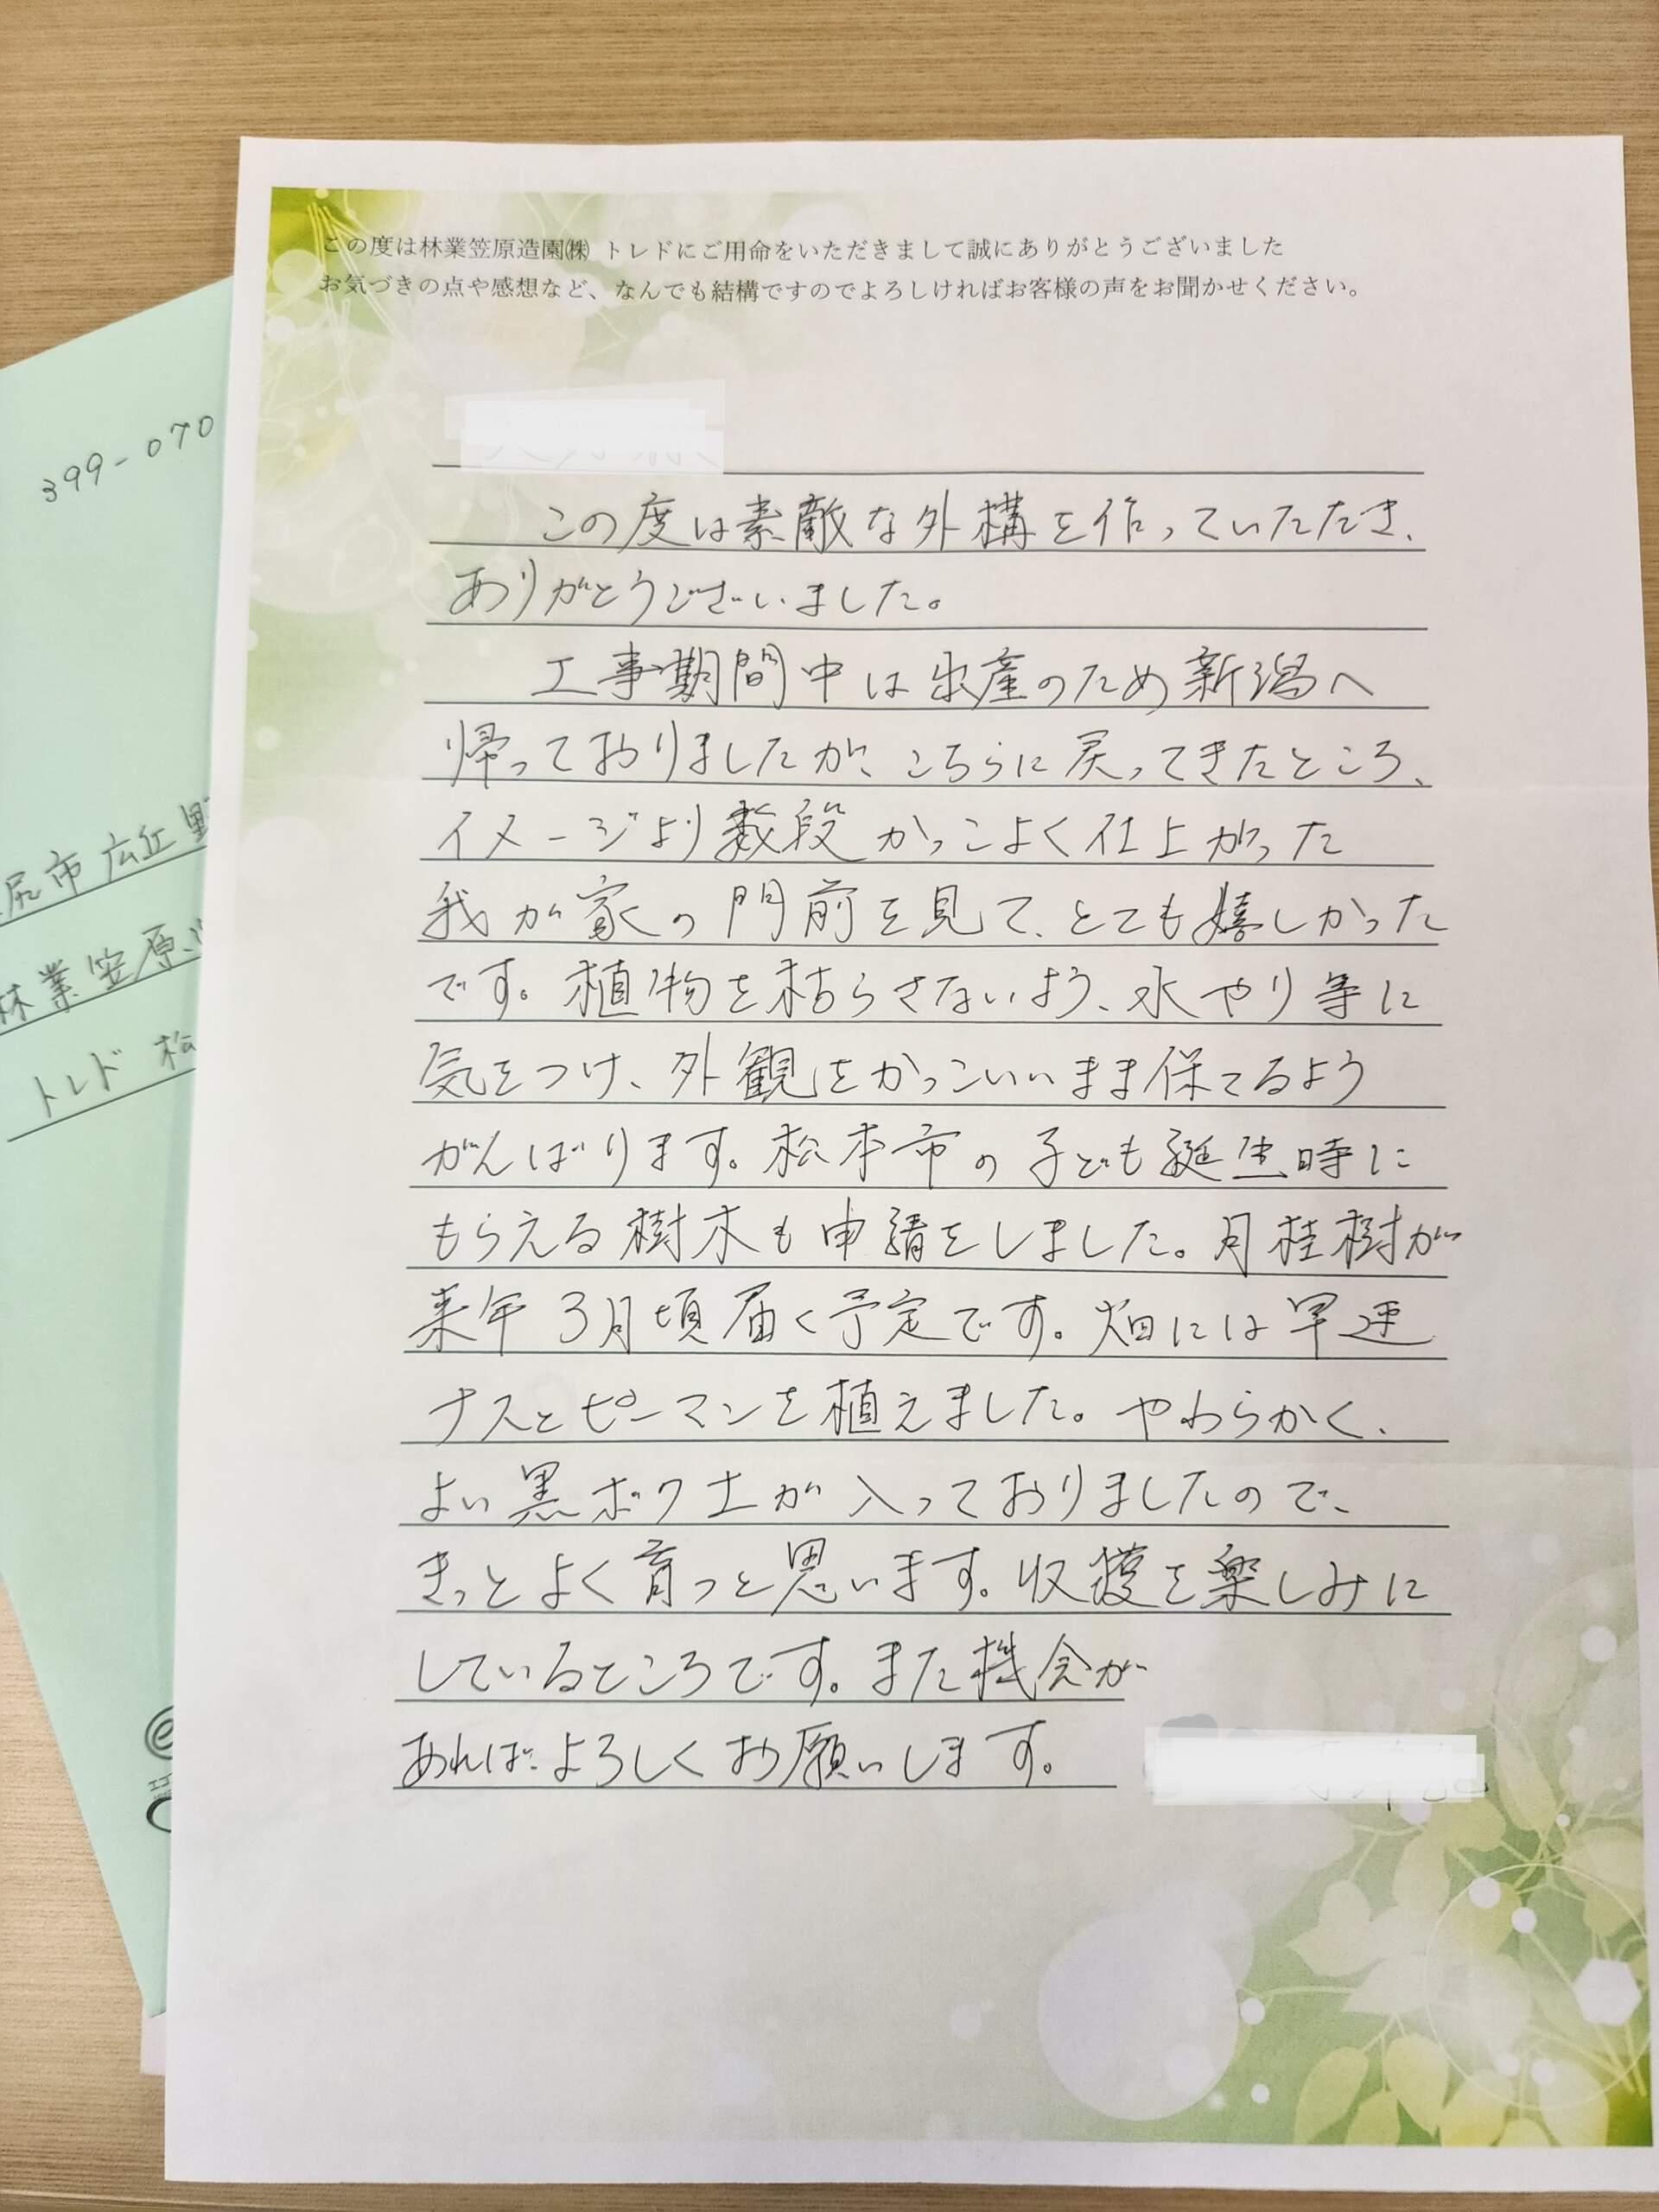 この度は林業笠原造園㈱ トレドにご用命をいただきまして誠にありがとうございました
お気づきの点や感想など、なんでも結構ですのでよろしければお客様の声をお聞かせください。
この度は素敵な外構を作っていただき、
ありがとうございました。
工事期間中は出産のため新潟へ
帰っておりましたが、こちらに戻ってきたところ、
イメージより数段かっこよく仕上がった
我が家の門前を見て、とても嬉しかった
です。植物を枯らさないよう、水やり等に
気をつけ、外観をかっこいいまま保てるよう
がんばります。松本市の子ども誕生時に
もらえる樹木も申請をしました。月桂樹が
来年3月頃届く予定です。畑には早速
ナスとピーマンを植えました。やわらかく、
よい黒ボク土が入っておりましたので、
きっとよく育つと思います。収穫を楽しみに
しているところです。また機会が
あれば、よろしくお願いします。
399-070
尻市広丘野
林業笠原
トレド 松